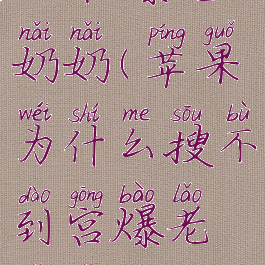 nǎi nǎi píng guǒ
奶奶(苹果
wéi shí me sōu bù
为什么搜不
dào gōng bào lǎo
到宫爆老